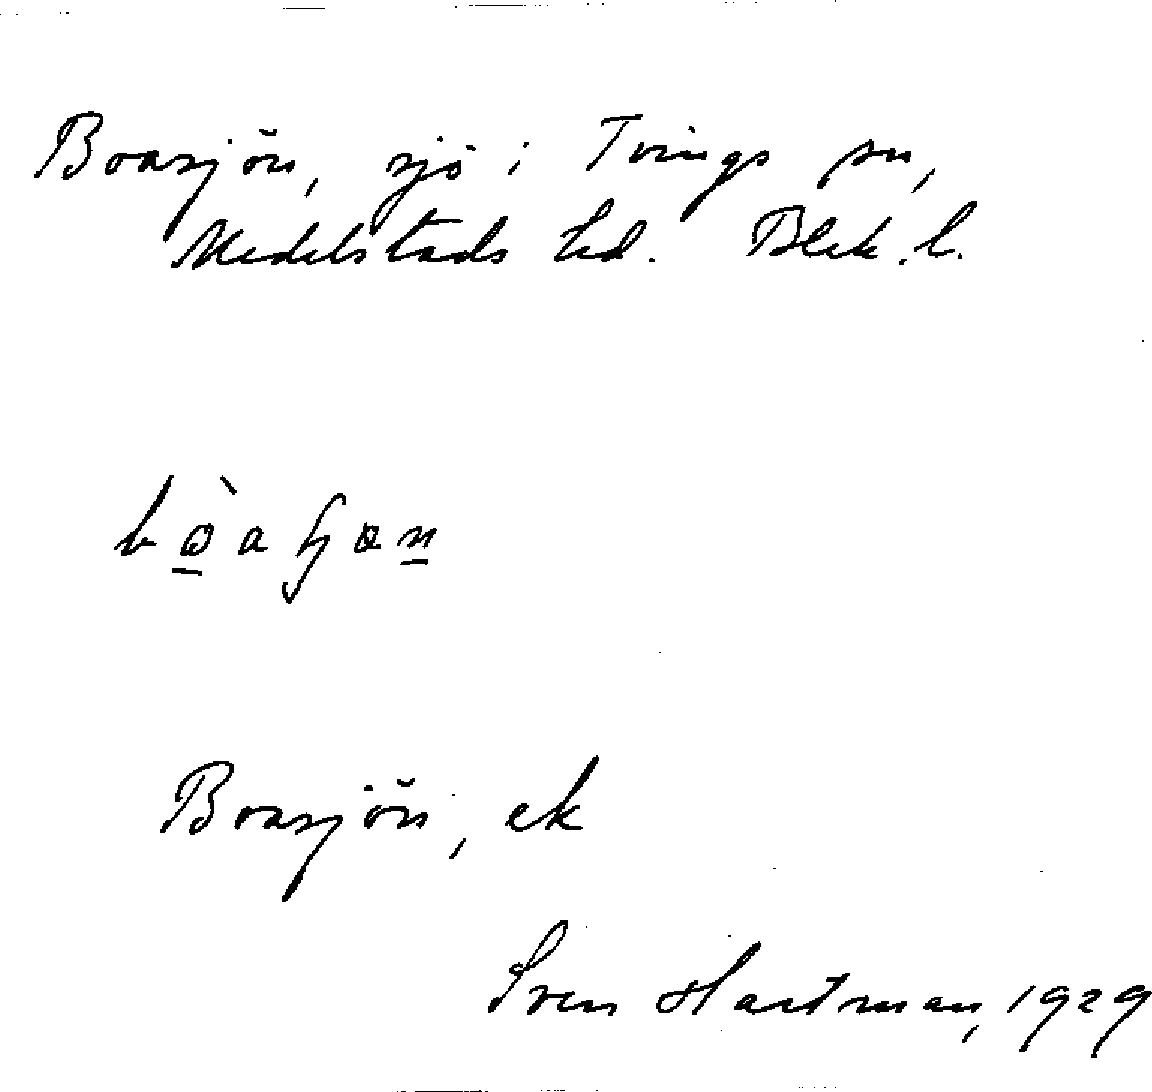 Boasjön, sjö i Tvings sn,
Medelstads hd. Blek.l.
Boasjön, ek
Sven Hartman, 1929